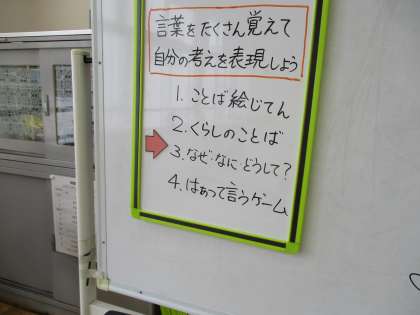 言葉をたくさん覚えて
自分の考えを表現しよう
1. ことば絵じてん
2. くらしのことば
3. なぜ・なに どうして?
4. はぁって言うゲーム